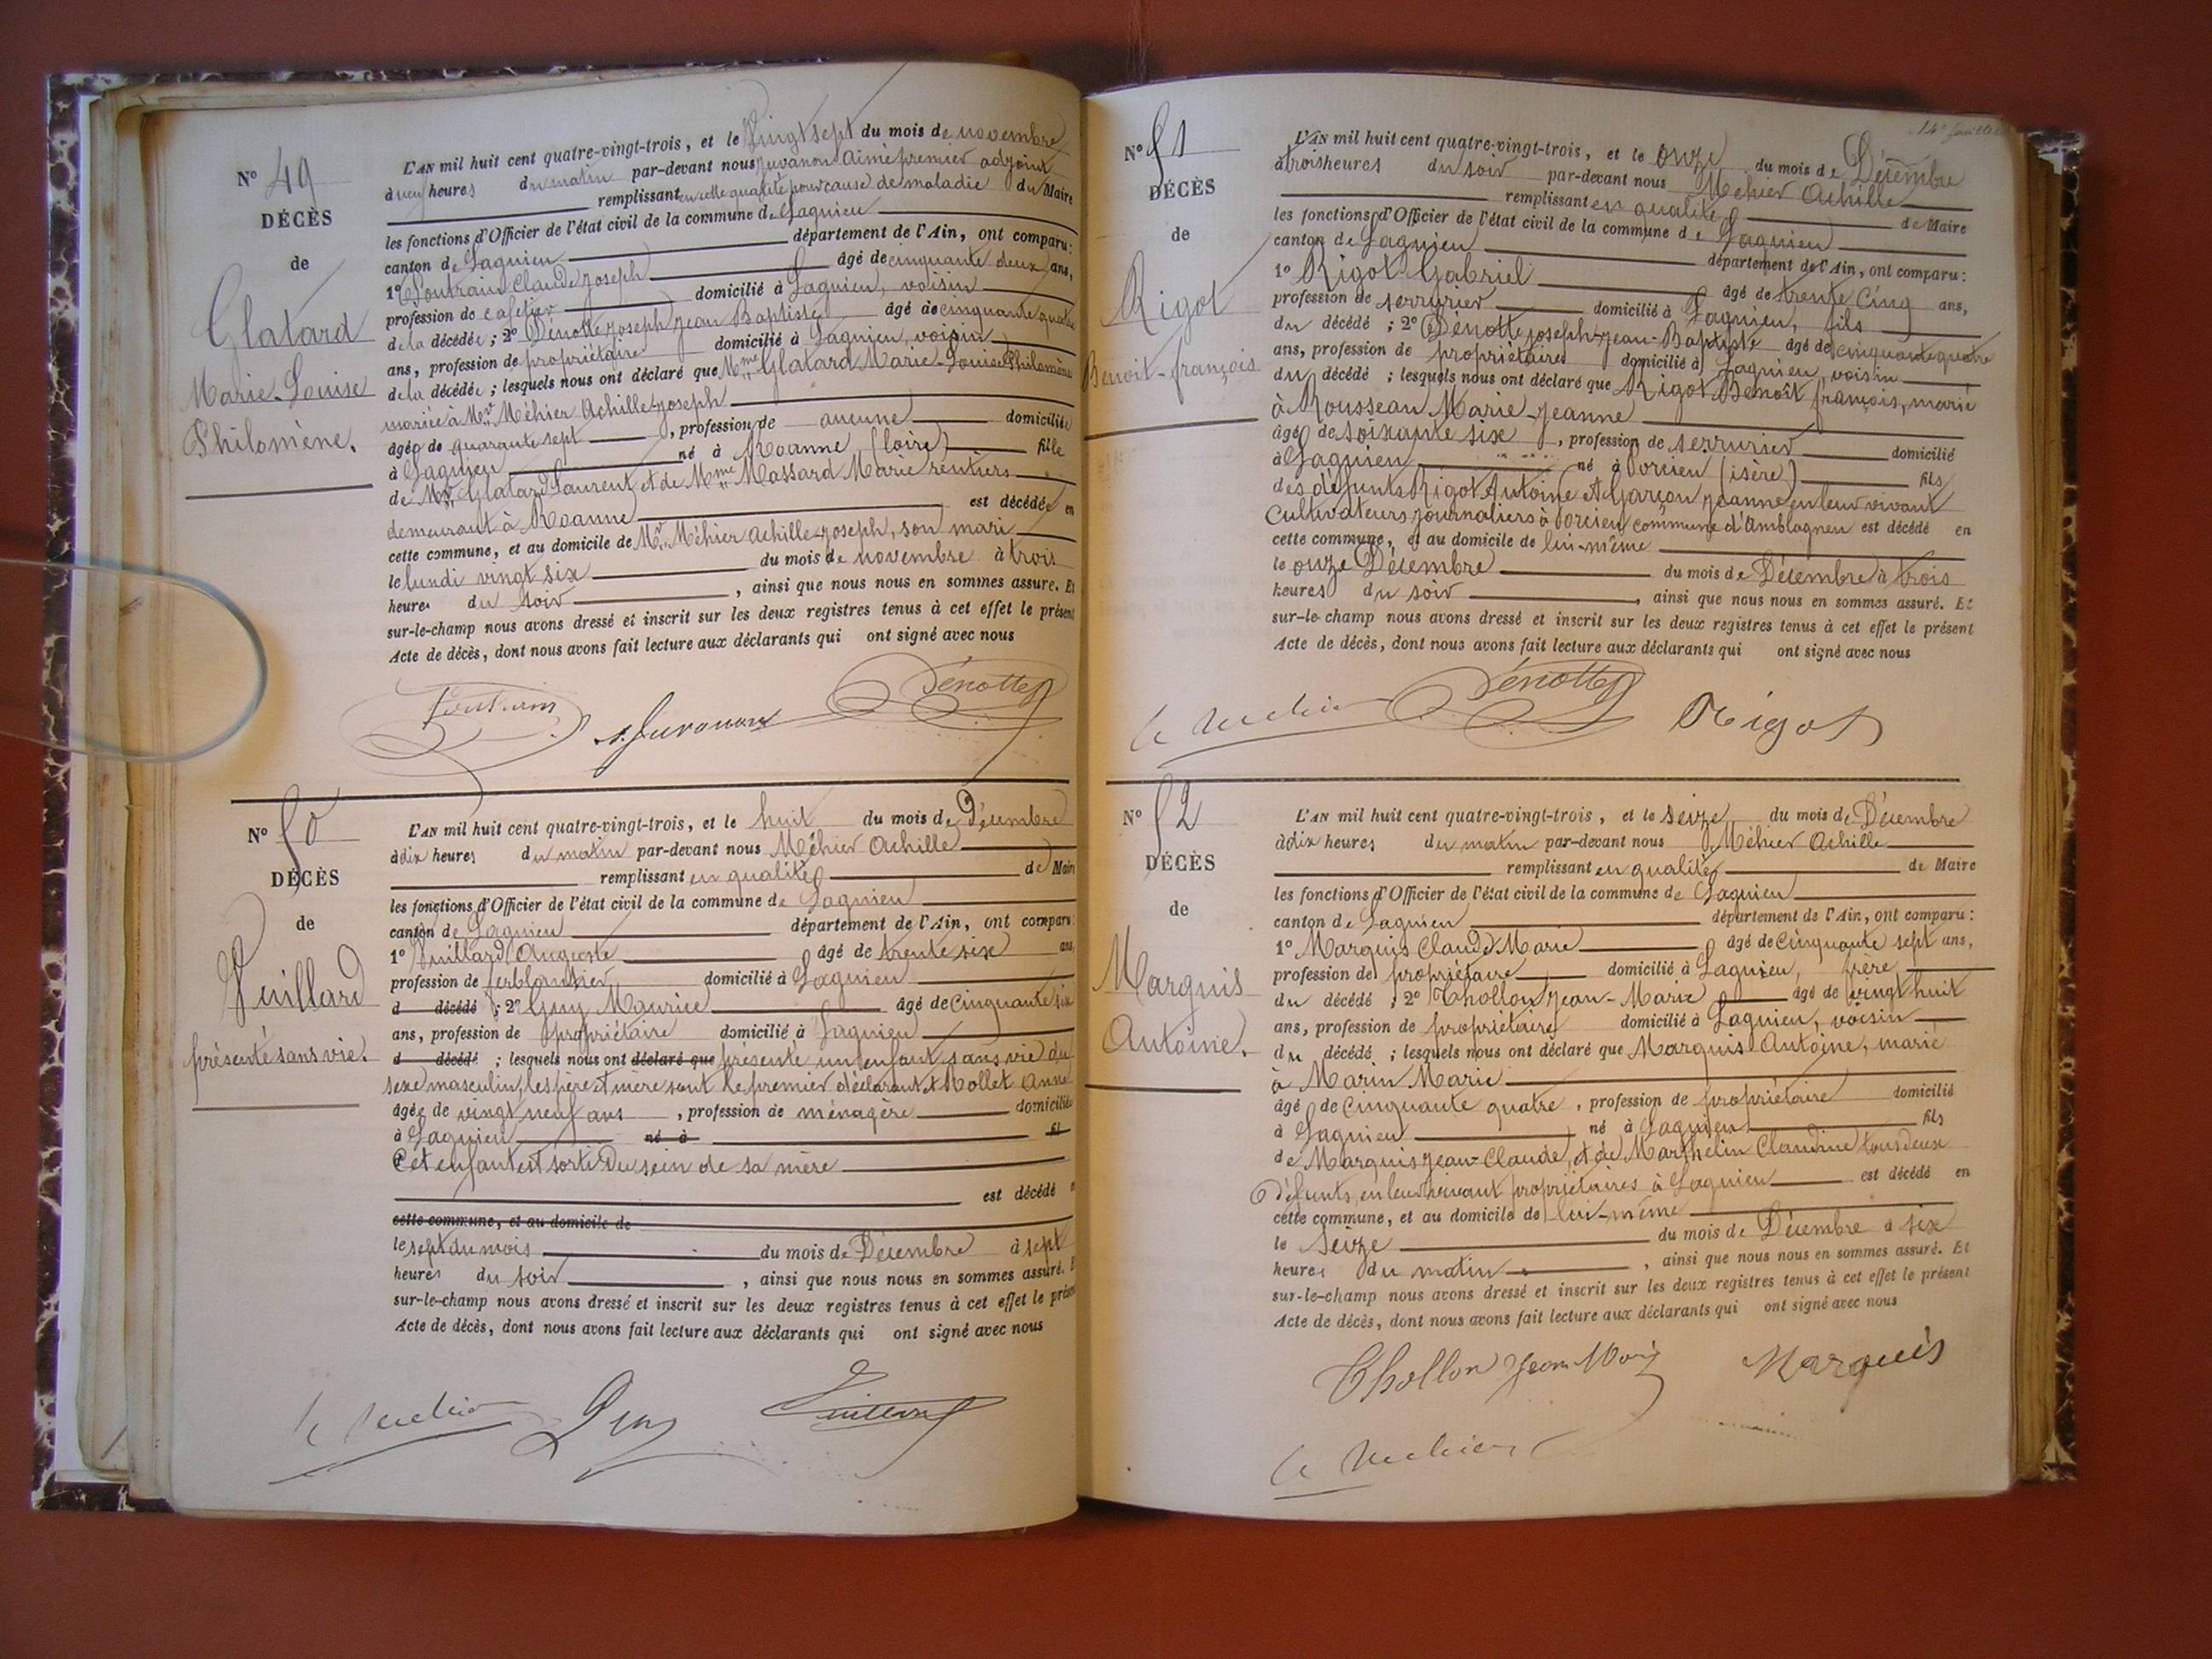 N° 49
DÉCÈS
de
Glatard
Marie-Louise
Philomène.
L'AN mil huit cent quatre-vingt-trois, et le vingt sept du mois de novembre
à neuf heures du matin par-devant nous Juvanon Aimé premier adjoint
remplissant en cette qualité pour cause de maladie du Maire
les fonctions d'Officier de l'état civil de la commune de Lagnieu
canton de Lagnieu département de l'Ain, ont comparu:
1° Claude Joseph âgé de cinquante deux ans,
profession de cafetier domicilié à Lagnieu, voisin
de la décédée; 2° Dénotte Joseph Jean Baptiste âgé de cinquante quatre
ans, profession de propriétaire domicilié à Lagnieu, voisin
de la décédée; lesquels nous ont déclaré que Mme Glatard Marie-Louise Philomène
mariée à Mr Méhier Achille-Joseph
âgée de quarante sept, profession de aucune domiciliée
à Lagnieu né à Roanne (loire) fille
de Mr Glatard Laurent et de Mme Massard Marie rentiers
demeurant à Roanne est décédée en
cette commune, et au domicile de Mr Méhier Achille-Joseph, son mari
le lundi vingt six du mois de novembre à trois
heures du soir, ainsi que nous nous en sommes assuré. Et
sur-le-champ nous avons dressé et inscrit sur les deux registres tenus à cet effet le présent
Acte de décès, dont nous avons fait lecture aux déclarants qui ont signé avec nous
A. Juvanon Dénotte
N° 50
DÉCÈS
de
Vuillard
présenté sans vie.
L'AN mil huit cent quatre-vingt-trois, et le huit du mois de Décembre
à dix heures du matin par-devant nous Méhier Achille
remplissant en qualité de Maire
les fonctions d'Officier de l'état civil de la commune de Lagnieu
canton de Lagnieu département de l'Ain, ont comparu:
1° Vuillard Auguste âgé de trente six ans,
profession de ferblantier domicilié à Lagnieu
d décédé; 2° Guy Maurice âgé de cinquante six
ans, profession de propriétaire domicilié à Lagnieu
d décédé; lesquels nous ont déclaré que présenté un enfant sans vie du
sexe masculin, les père et mère sont le premier déclarant et Mollet Anne
âgée de vingt neuf ans, profession de ménagère domiciliée
à Lagnieu né à fil
Cet enfant est sorti du sein de sa mère
est décédé
cette commune, et au domicile de
le sept du mois du mois de Décembre à sept
heures du soir, ainsi que nous nous en sommes assuré. E
sur-le-champ nous avons dressé et inscrit sur les deux registres tenus à cet effet le présent
Acte de décès, dont nous avons fait lecture aux déclarants qui ont signé avec nous
A Méhier Guy Vuillard
14e feuillet
N° 51
DÉCÈS
de
Rigot
Benoit-françois
L'AN mil huit cent quatre-vingt-trois, et le onze du mois de Décembre
à trois heures du soir par-devant nous Méhier Achille
remplissant en qualité de Maire
les fonctions d'Officier de l'état civil de la commune de Lagnieu
canton de Lagnieu département de l'Ain, ont comparu:
1° Rigot Gabriel âgé de trente cinq ans,
profession de serrurier domicilié à Lagnieu, fils
du décédé; 2° Dénotte Joseph-Jean-Baptiste âgé de cinquante quatre
ans, profession de propriétaire domicilié à Lagnieu, voisin
du décédé; lesquels nous ont déclaré que Rigot Benoît françois, marié
à Rousseau Marie-Jeanne
âgé de soixante six, profession de serrurier domicilié
à Lagnieu né à Porcieu (isère) fils
des défunts Rigot Antoine et Garçon Jeanne en leur vivant
Cultivateurs journaliers à Porcieu commune d'Amblagneu est décédé en
cette commune, et au domicile de lui-même
le onze Décembre du mois de Décembre à trois
heures du soir, ainsi que nous nous en sommes assuré. Et
sur-le-champ nous avons dressé et inscrit sur les deux registres tenus à cet effet le présent
Acte de décès, dont nous avons fait lecture aux déclarants qui ont signé avec nous
A Méhier Dénotte Rigot
N° 52
DÉCÈS
de
Marquis
Antoine.
L'AN mil huit cent quatre-vingt-trois, et le seize du mois de Décembre
à dix heures du matin par-devant nous Méhier Achille
remplissant en qualité de Maire
les fonctions d'Officier de l'état civil de la commune de Lagnieu
canton de Lagnieu département de l'Ain, ont comparu:
1° Marquis Claude Marie âgé de cinquante sept ans,
profession de propriétaire domicilié à Lagnieu, frère
du décédé; 2° Thollon Jean-Marie âgé de vingt huit
ans, profession de propriétaire domicilié à Lagnieu, voisin
du décédé; lesquels nous ont déclaré que Marquis Antoine, marié
à Marin Marie
âgé de cinquante quatre, profession de propriétaire domicilié
à Lagnieu né à Lagnieu fils
de Marquis Jean-Claude, et de Marthelin Claudine tous deux
Défunts, en leur vivant propriétaires à Lagnieu est décédé en
cette commune, et au domicile de lui-même
le seize du mois de Décembre à six
heures du matin, ainsi que nous nous en sommes assuré. Et
sur-le-champ nous avons dressé et inscrit sur les deux registres tenus à cet effet le présent
Acte de décès, dont nous avons fait lecture aux déclarants qui ont signé avec nous
Thollon Jean Marie Marquis
A Méhier